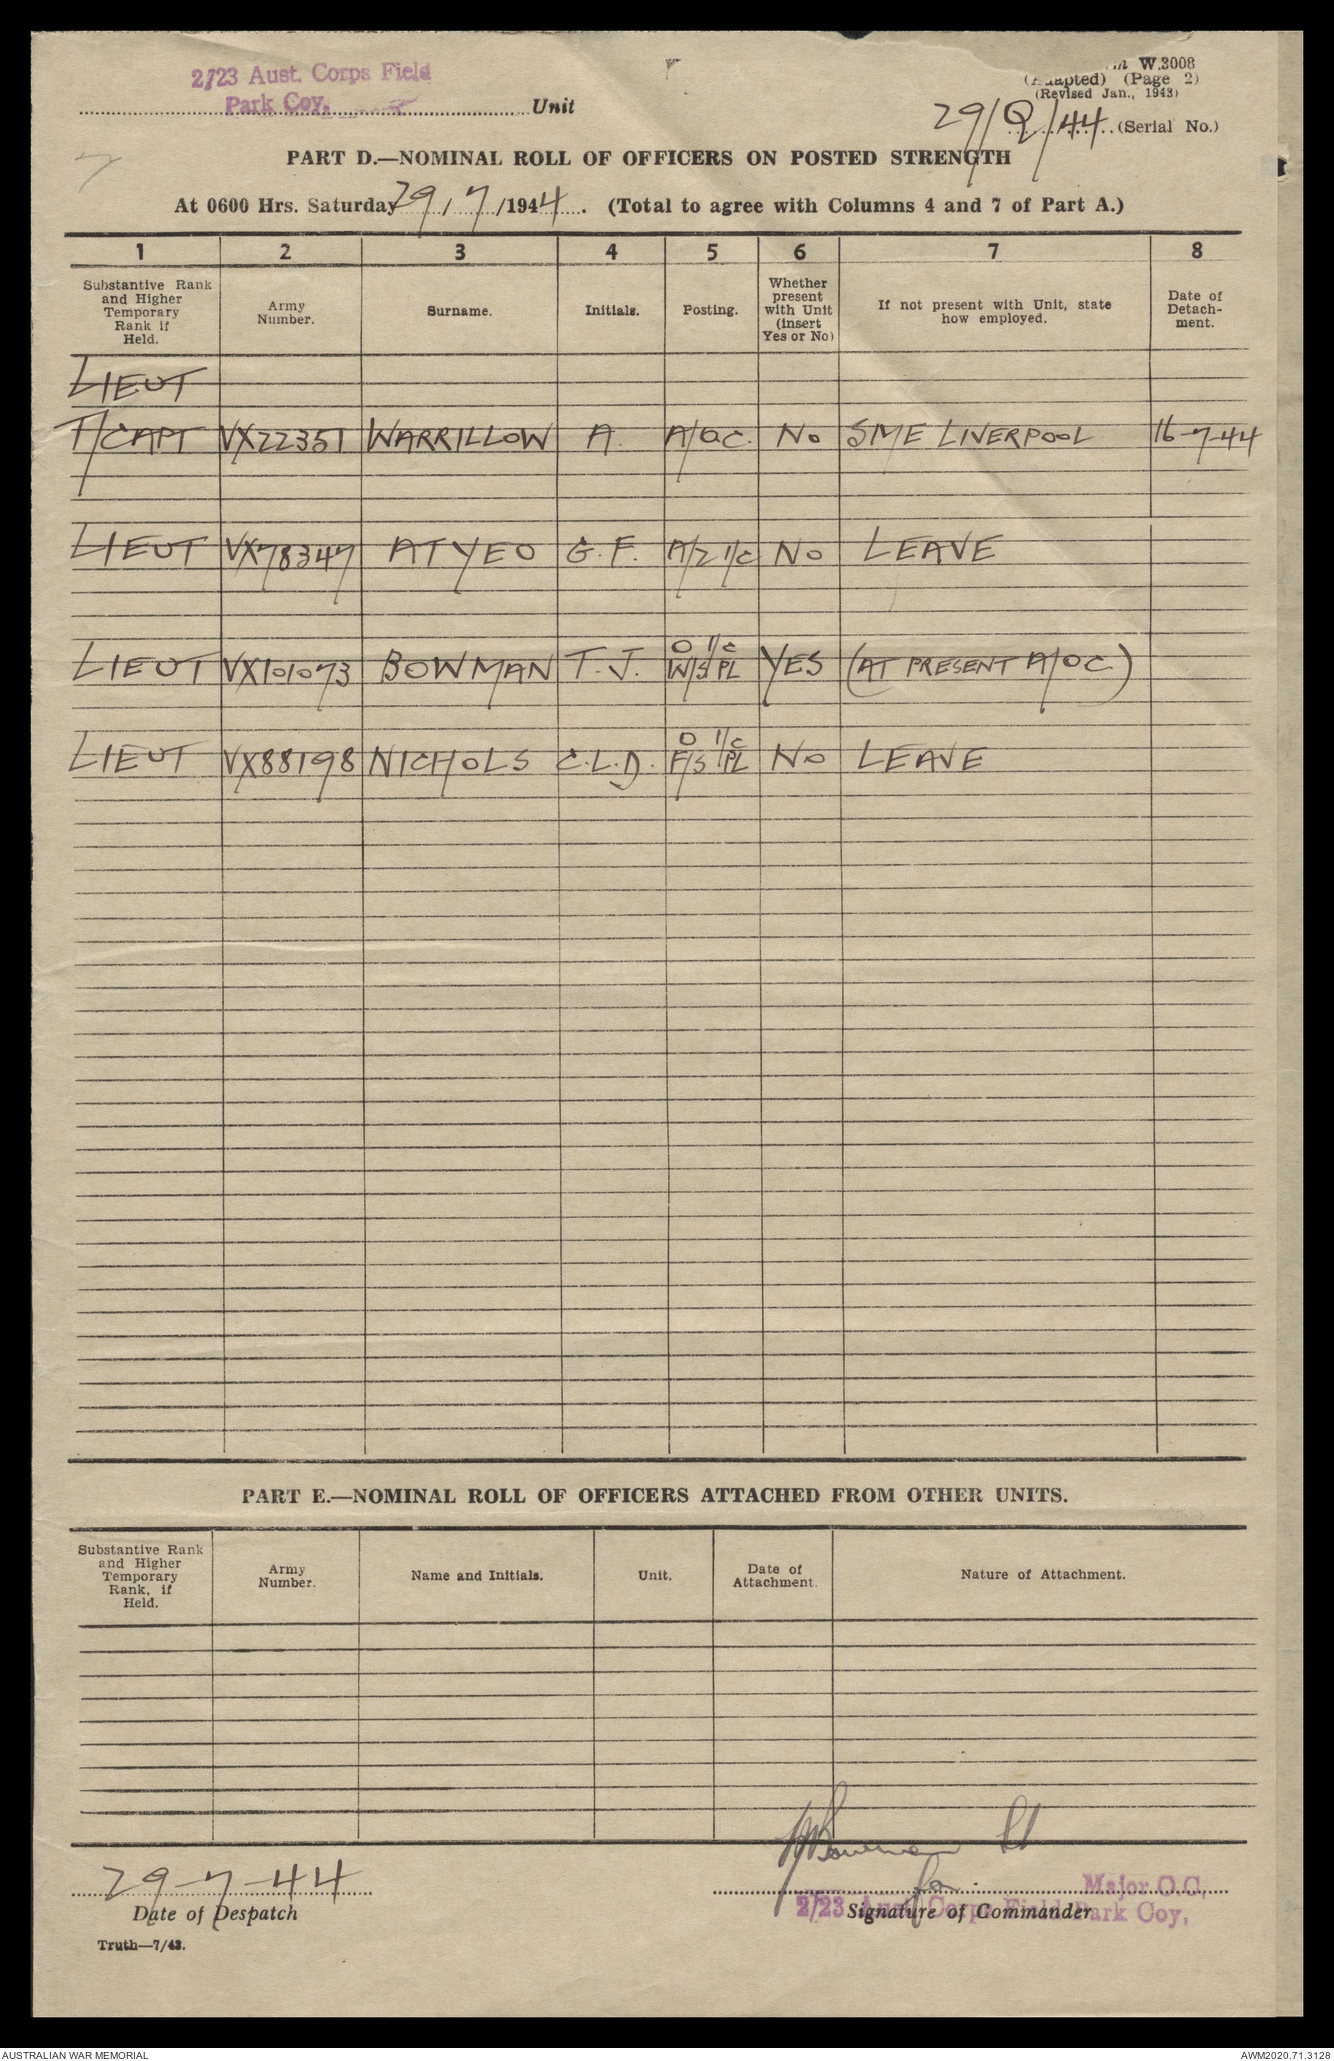 2/23 Aust. Corps Field
Park Coy. Unit
W.3008
(Adapted) (Page 2)
(Revised Jan., 1943)
29/Q/44 (Serial No.)
PART D.—NOMINAL ROLL OF OFFICERS ON POSTED STRENGTH
At 0600 Hrs. Saturday 29/7/1944. (Total to agree with Columns 4 and 7 of Part A.)
1 2 3 4 5 6 7 8
Substantive Rank and Higher Temporary Rank if Held. Army Number. Surname. Initials. Posting. Whether present with Unit (insert Yes or No) If not present with Unit, state how employed. Date of Detach-ment.
LIEUT
T/CAPT VX22351 WARRILLOW A. A/O.C. NO SME LIVERPOOL 16-7-44
LIEUT VX78347 ATYEO G.F. A/2 I/C NO LEAVE
LIEUT VX101073 BOWMAN T.J. O I/C W/S PL YES (AT PRESENT A/OC)
LIEUT VX88198 NICHOLS C.L.D. O I/C F/S PL NO LEAVE
PART E.—NOMINAL ROLL OF OFFICERS ATTACHED FROM OTHER UNITS.
Substantive Rank and Higher Temporary Rank, if Held. Army Number. Name and Initials. Unit. Date of Attachment. Nature of Attachment.
TJBowman Lt
29-7-44 for Major O.C,
Date of Despatch Signature of Commander
2/23 Aust Corps Field Park Coy,
Truth—7/43.
AUSTRALIAN WAR MEMORIAL AWM2020.71.3128